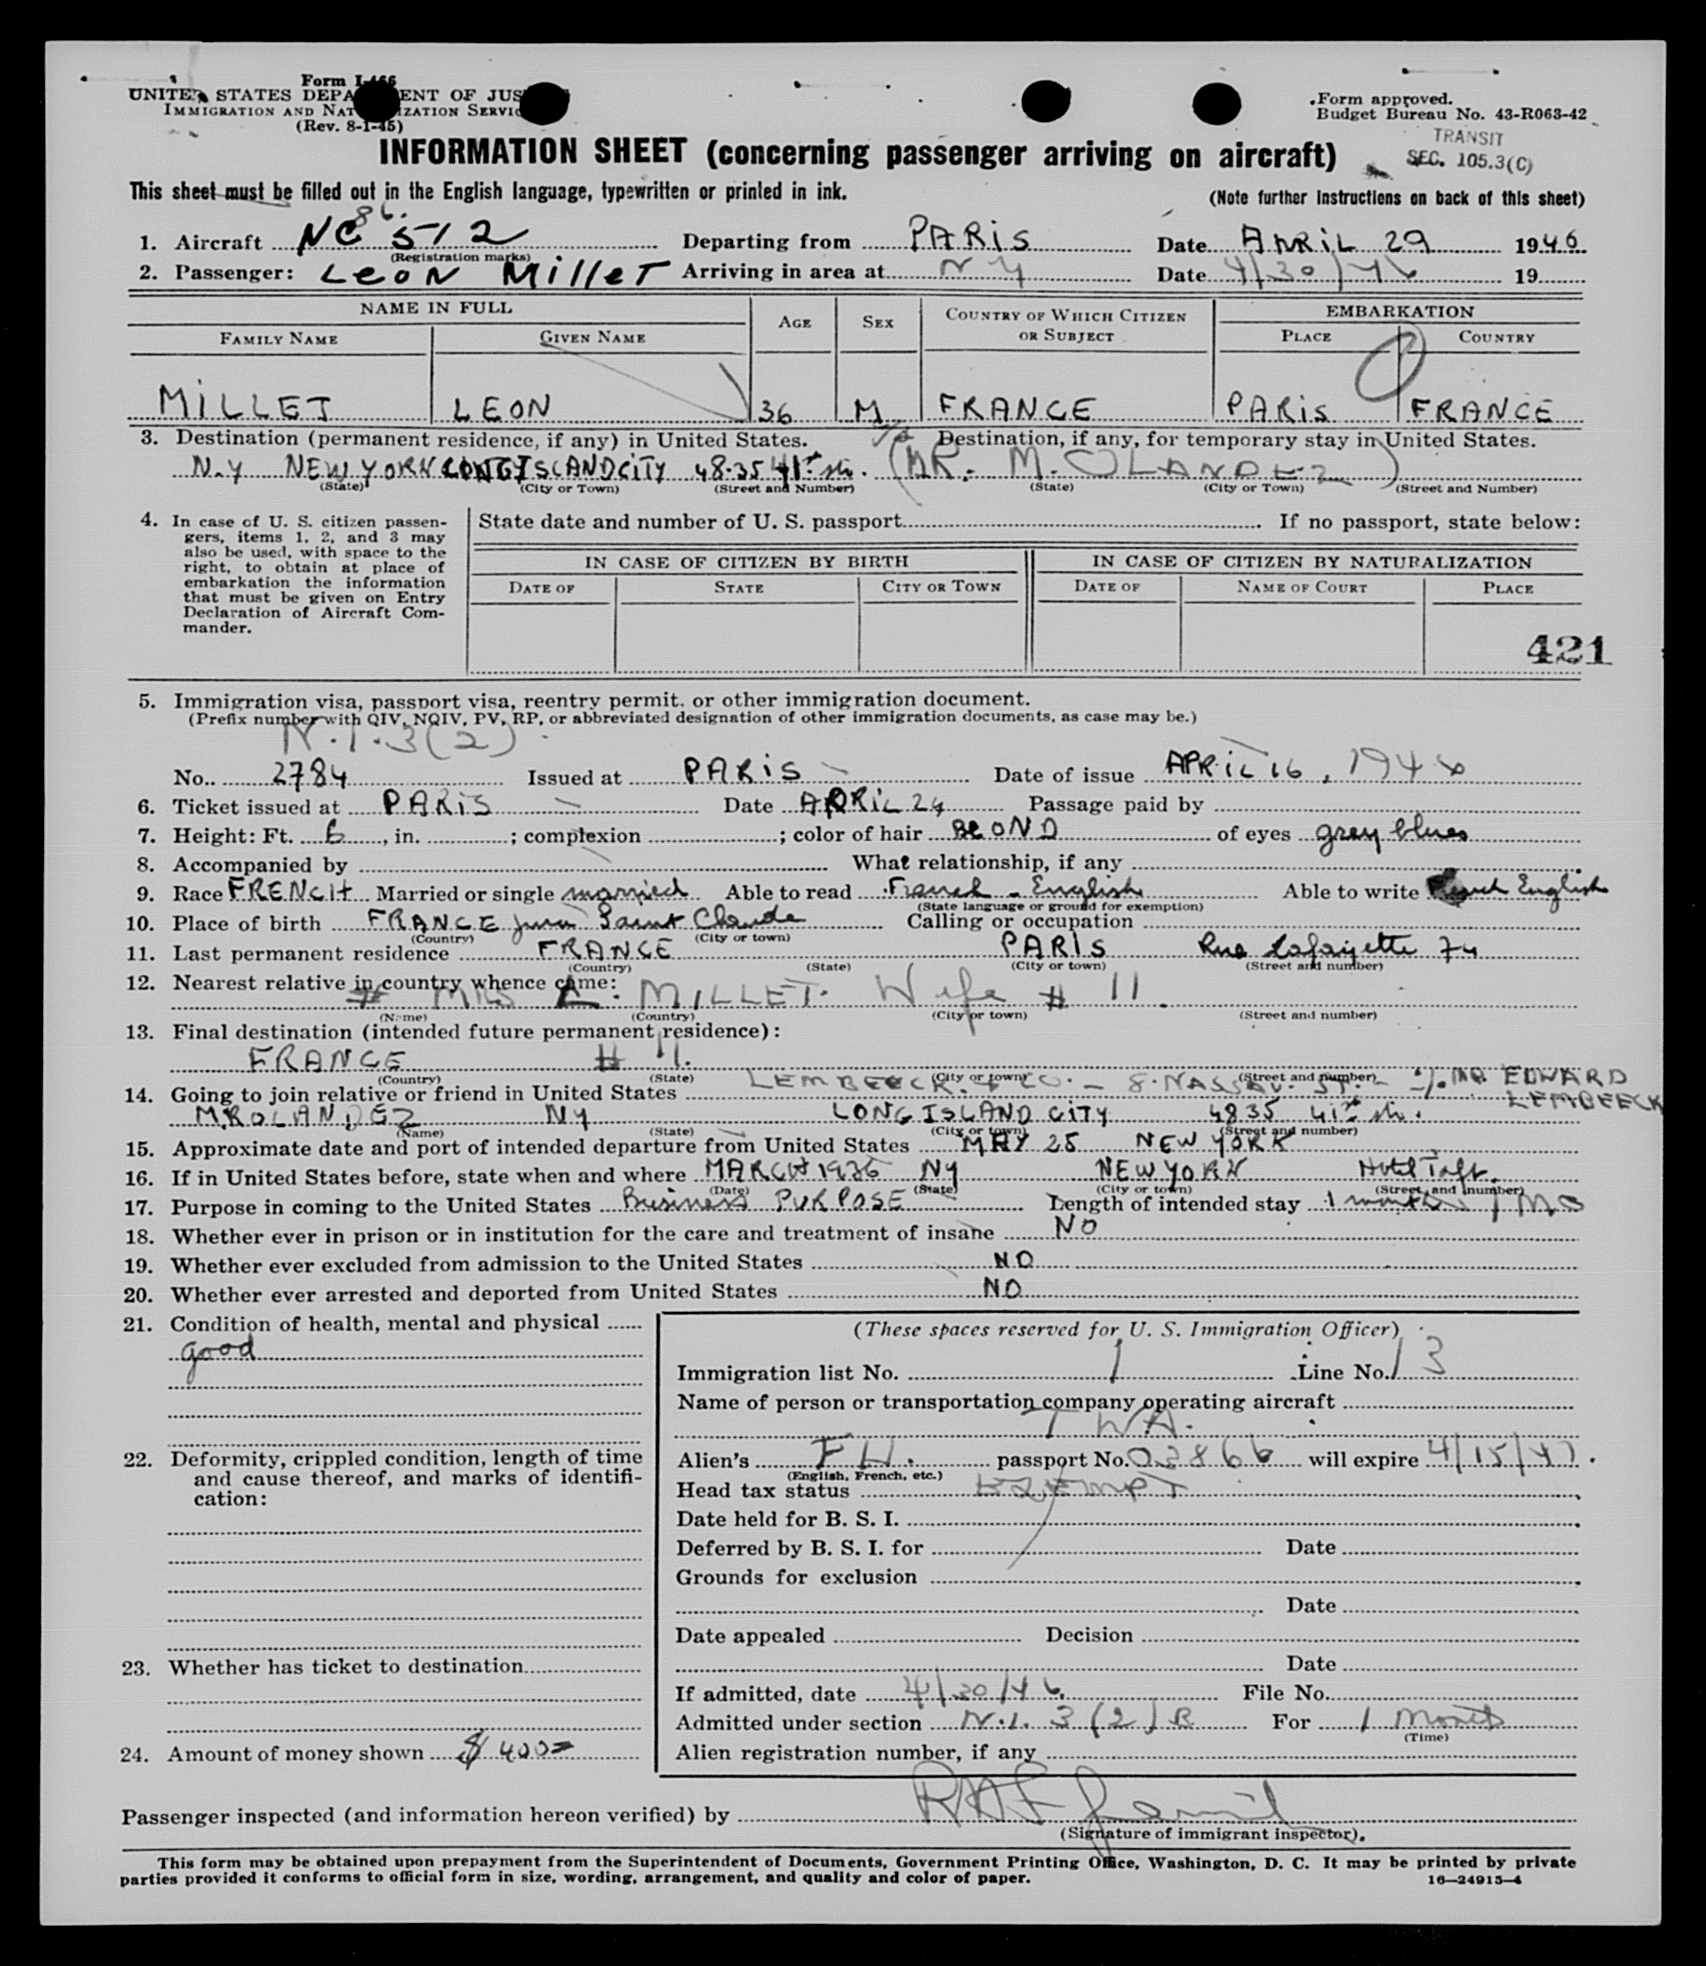 Form I-466
UNITED STATES DEPARTMENT OF JUSTICE
IMMIGRATION AND NATURALIZATION SERVICE
(Rev. 8-1-45)
Form approved.
Budget Bureau No. 43-R063-42
TRANSIT
SEC. 105.3(C)
INFORMATION SHEET (concerning passenger arriving on aircraft)
This sheet must be filled out in the English language, typewritten or printed in ink.
(Note further instructions on back of this sheet)
86.
1. Aircraft NC 512 Departing from PARIS Date APRIL 29 1946
(Registration marks)
2. Passenger: Leon Millet Arriving in area at NY Date 4/30/46 19
NAME IN FULL AGE SEX COUNTRY OF WHICH CITIZEN OR SUBJECT EMBARKATION
FAMILY NAME GIVEN NAME PLACE COUNTRY
MILLET LEON 36 M FRANCE PARIS FRANCE
3. Destination (permanent residence, if any) in United States. Destination, if any, for temporary stay in United States.
N.Y NEW YORK LONG ISLAND CITY 48.35 41st str. (MR. M. OLANDEZ)
(State) (City or Town) (Street and Number) (State) (City or Town) (Street and Number)
4. In case of U. S. citizen passen-
gers, items 1, 2, and 3 may
also be used, with space to the
right, to obtain at place of
embarkation the information
that must be given on Entry
Declaration of Aircraft Com-
mander.
State date and number of U. S. passport If no passport, state below:
IN CASE OF CITIZEN BY BIRTH IN CASE OF CITIZEN BY NATURALIZATION
DATE OF STATE CITY OR TOWN DATE OF NAME OF COURT PLACE
421
5. Immigration visa, passport visa, reentry permit, or other immigration document.
(Prefix number with QIV, NQIV, PV, RP, or abbreviated designation of other immigration documents, as case may be.)
N.I.3(2)
No. 2784 Issued at PARIS Date of issue APRIL 16, 1946
6. Ticket issued at PARIS Date APRIL 24 Passage paid by
7. Height: Ft. 6, in. ; complexion ; color of hair BLOND of eyes grey blues
8. Accompanied by What relationship, if any
9. Race FRENCH Married or single married Able to read French - English Able to write French English
(State language or ground for exemption)
10. Place of birth FRANCE Jura Saint Claude Calling or occupation
(Country) (City or town)
11. Last permanent residence FRANCE PARIS Rue Lafayette 74
(Country) (State) (City or town) (Street and number)
12. Nearest relative in country whence came:
# MRS L. MILLET. Wife # 11.
(Name) (Country) (City or town) (Street and number)
13. Final destination (intended future permanent residence):
FRANCE # 11.
(Country) (State) (City or town) (Street and number)
14. Going to join relative or friend in United States LEMBEECK & CO. - 8. NASSAU. ST. - %. MR. EDWARD LEMBEECK
M.R OLANDEZ NY LONG ISLAND CITY 4835 41st str.
(Name) (State) (City or town) (Street and number)
15. Approximate date and port of intended departure from United States MAY 25 NEW YORK
16. If in United States before, state when and where MARCH 1936 NY NEW YORK Hotel Taft.
(Date) (State) (City or town) (Street and number)
17. Purpose in coming to the United States Business PURPOSE Length of intended stay 1 month 1 MO
18. Whether ever in prison or in institution for the care and treatment of insane NO
19. Whether ever excluded from admission to the United States NO
20. Whether ever arrested and deported from United States NO
21. Condition of health, mental and physical
good
22. Deformity, crippled condition, length of time
and cause thereof, and marks of identifi-
cation:
23. Whether has ticket to destination
24. Amount of money shown $ 400=
(These spaces reserved for U. S. Immigration Officer)
Immigration list No. 1 Line No. 13
Name of person or transportation company operating aircraft
TWA.
Alien's FH. passport No. 03866 will expire 4/15/47.
(English, French, etc.)
Head tax status EXEMPT
Date held for B. S. I.
Deferred by B. S. I. for Date
Grounds for exclusion
Date
Date appealed Decision
Date
If admitted, date 4/30/46. File No.
Admitted under section N.I. 3 (2) R For 1 Month
(Time)
Alien registration number, if any
Passenger inspected (and information hereon verified) by
(Signature of immigrant inspector).
This form may be obtained upon prepayment from the Superintendent of Documents, Government Printing Office, Washington, D. C. It may be printed by private
parties provided it conforms to official form in size, wording, arrangement, and quality and color of paper.
16—24915-4